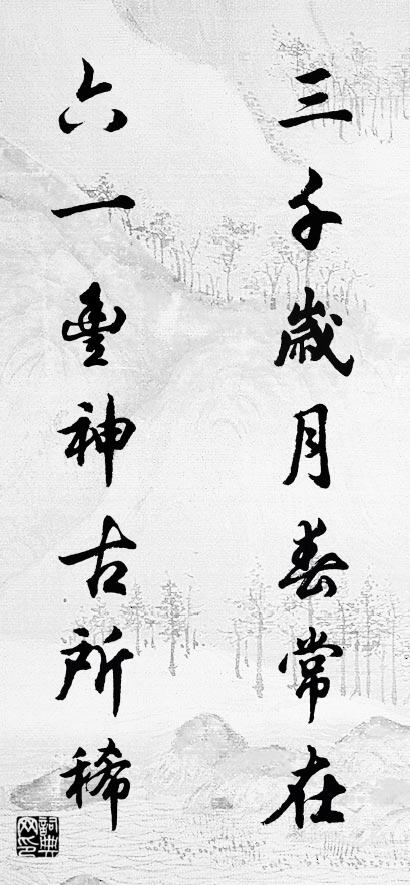 三千歲月春常在
六一豐神古所稀
詞典网印